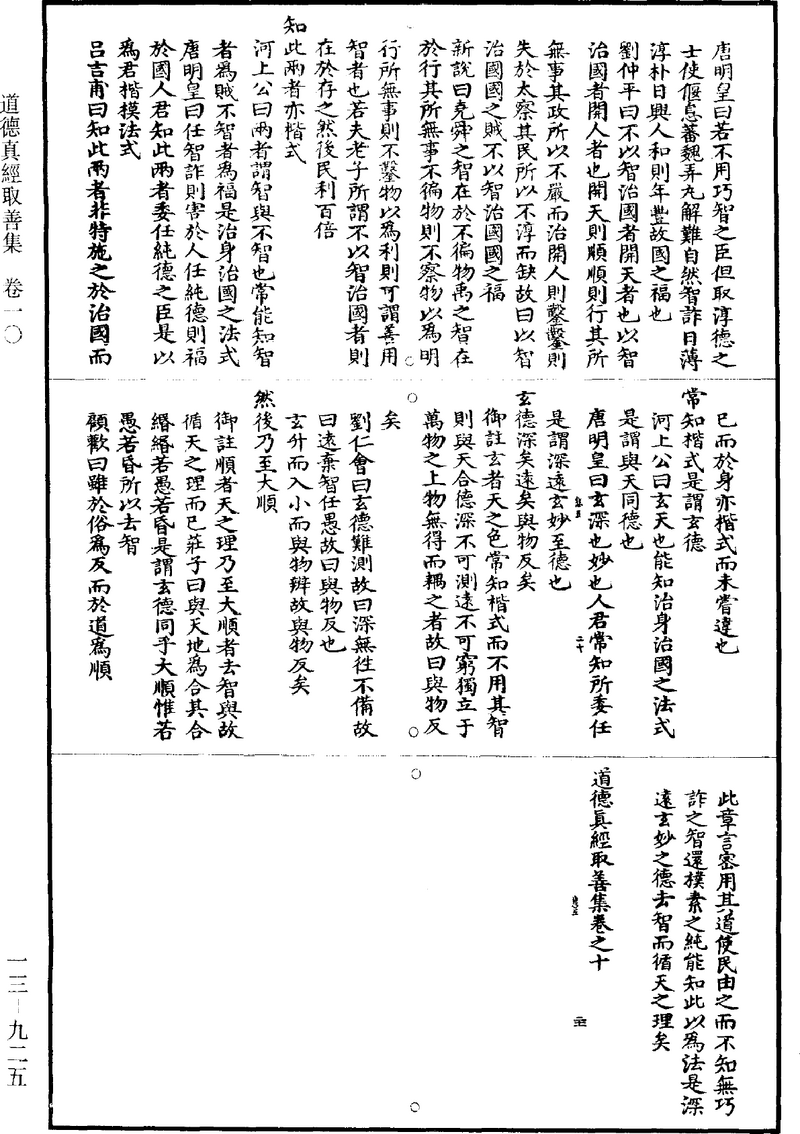 唐明皇曰若不用巧智之臣但取淳德之
士使偃息蕃魏弄丸解難自然智詐日薄
淳朴日興人和則年豐故國之福也
劉仲平曰不以智治國者開天者也以智
治國者開人者也開天則順順則行其所
無事其政所以不嚴而治開人則鑿鑿則
失於太察其民所以不淳而缺故曰以智
治國國之賊不以智治國國之福
新說曰堯舜之智在於不徧物禹之智在
於行其所無事不徧物則不察物以為明
行所無事則不鑿物以為利則可謂善用
智者也若夫老子所謂不以智治國者則
在於存之然後民利百倍
知此兩者亦楷式
河上公曰兩者謂智與不智也常能知智
者為賊不智者為福是治身治國之法式
唐明皇曰任智詐則害於人任純德則福
於國人君知此兩者委任純德之臣是以
為君楷模法式
呂吉甫曰知此兩者非特施之於治國而
已而於身亦楷式而未嘗違也
常知楷式是謂玄德
河上公曰玄天也能知治身治國之法式
是謂與天同德也
唐明皇曰玄深也妙也人君常知所委任
是謂深遠玄妙至德也
玄德深矣遠矣與物反矣
御註玄者天之色常知楷式而不用其智
則與天合德深不可測遠不可窮獨立于
萬物之上物無得而耦之者故曰與物反
矣
劉仁會曰玄德難測故曰深無往不備故
曰遠棄智任愚故曰與物反也
玄升而入小而與物辨故與物反矣
然後乃至大順
御註順者天之理乃至大順者去智與故
循天之理而已莊子曰與天地為合其合
緡緡若愚若昏是謂玄德同乎大順惟若
愚若昏所以去智
顧歡曰雖於俗為反而於道為順
此章言密用其道使民由之而不知無巧
詐之智還樸素之純能知此以為法是深
遠玄妙之德去智而循天之理矣
道德真經取善集卷之十
道德真經取善集 卷一〇
一三－九二五